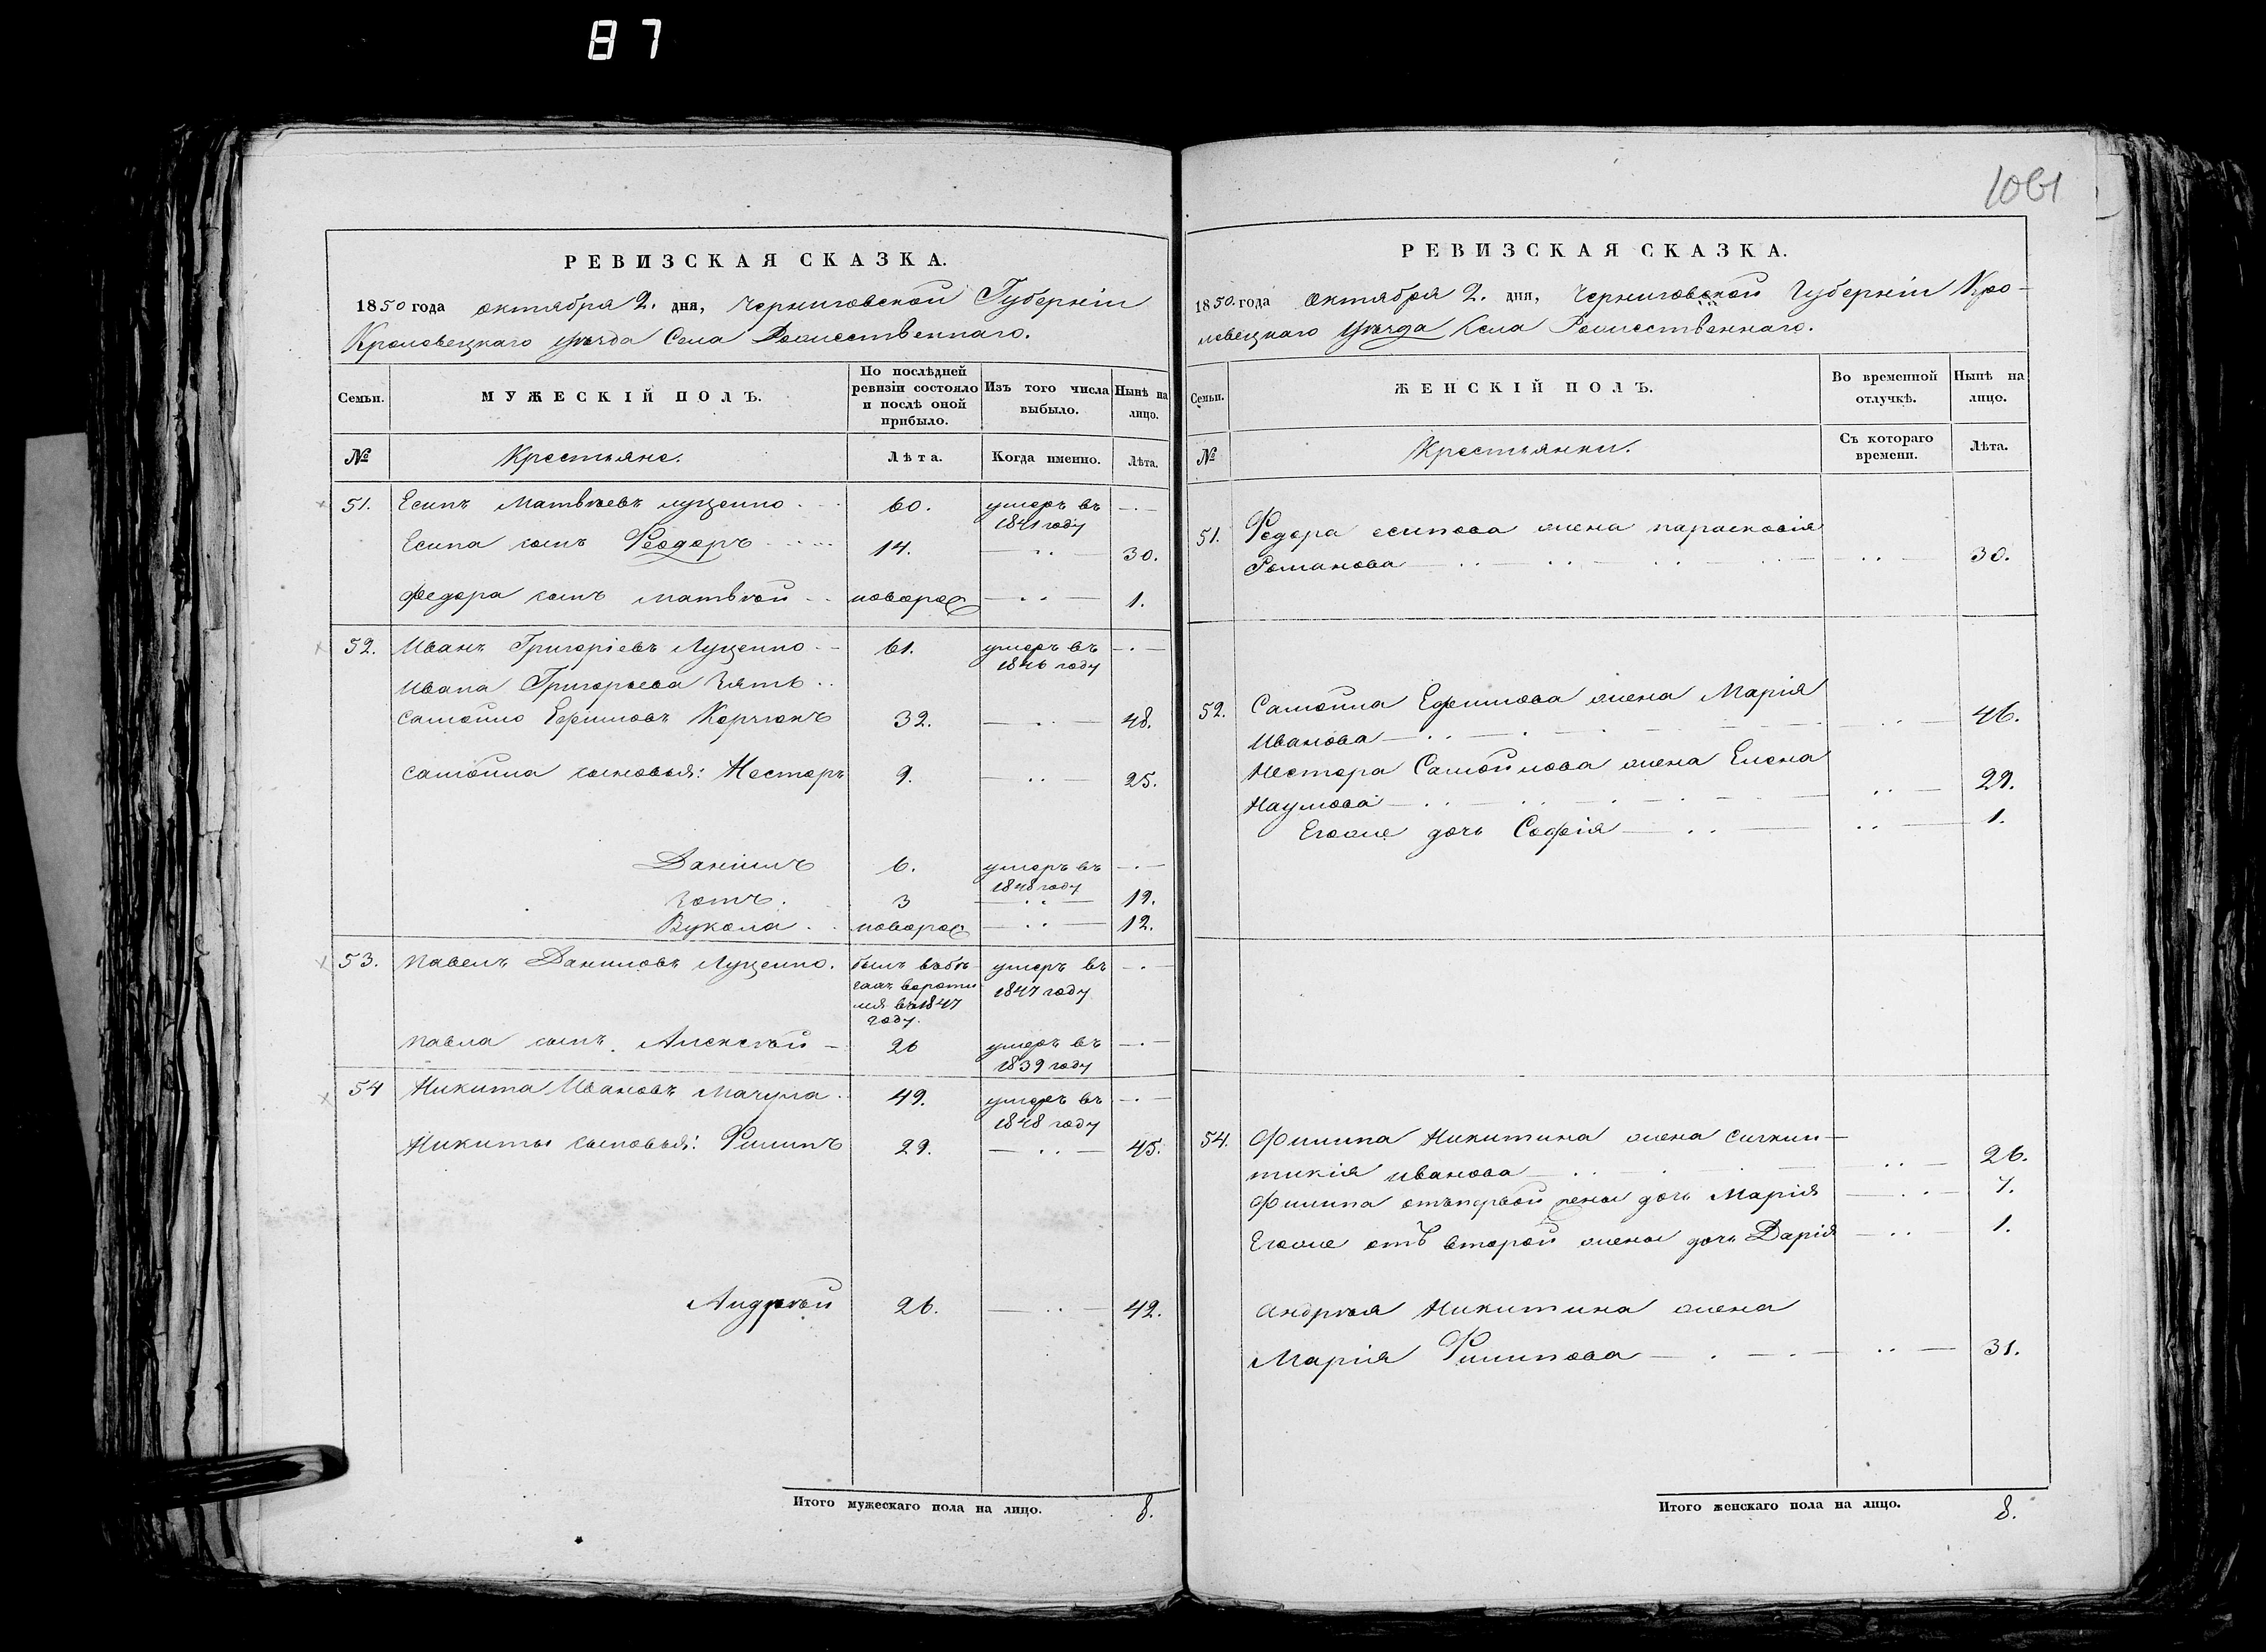 87
1061
РЕВИЗСКАЯ СКАЗКА.
1850 года октября 2. дня, Черниговской Губерніи
Кролевецкаго уѣзда Села Рожественнаго.
Семьи.
МУЖЕСКІЙ ПОЛЪ.
По послѣдней ревизіи состояло и послѣ оной прибыло.
Изъ того числа выбыло.
Нынѣ на лицо.
№
Крестьяне.
Лѣта.
Когда именно.
Лѣта.
51. Есипъ Матвѣевъ Луценко 60. умеръ въ 1841 году
Есипа сынъ Ѳеодоръ 14. 30.
Федора сынъ Матвѣй новорож 1.
52. Иванъ Григоріевъ Луценко 61. умеръ въ 1846 году
Ивана Григорьева зять
Самойло Ефимовъ 32. 48.
Самойла сыновья: Несторъ 9. 25.
Даніилъ 6. умеръ въ 1848 году
3 19.
Вукола новорож 12.
53. Павелъ Даниловъ Луценко. былъ въ бѣгахъ воротился въ 1847 году. умеръ въ 1847 году
Павла сынъ Алексѣй 26 умеръ въ 1839 году
54 Никита Ивановъ Мачула 49. умеръ въ 1848 году
Никиты сыновья: Филипъ 29. 45.
Андрѣй 26. 42.
Итого мужескаго пола на лицо. 8.
РЕВИЗСКАЯ СКАЗКА.
1850. года октября 2. дня, Черниговской Губерніи Кро-
левецкаго уѣзда Села Рожественнаго.
Семьи.
ЖЕНСКІЙ ПОЛЪ.
Во временной отлучкѣ.
Нынѣ на лицо.
№
Крестьянки.
Съ котораго времени.
Лѣта.
51. Федора Есипова жена Парасковія
Романова 30.
52. Самойла Ефимова жена Марія
Иванова 46.
Нестора Самойлова жена Елена
Наумова 22.
Егоже дочь Софія 1.
54. Филипа Никитина жена
Иванова 26.
Филипа отъ первой жены дочь Марія 7.
Егоже отъ второй жены дочь Дарія 1.
Андрѣя Никитина жена
Марія Филипова 31.
Итого женскаго пола на лицо. 8.